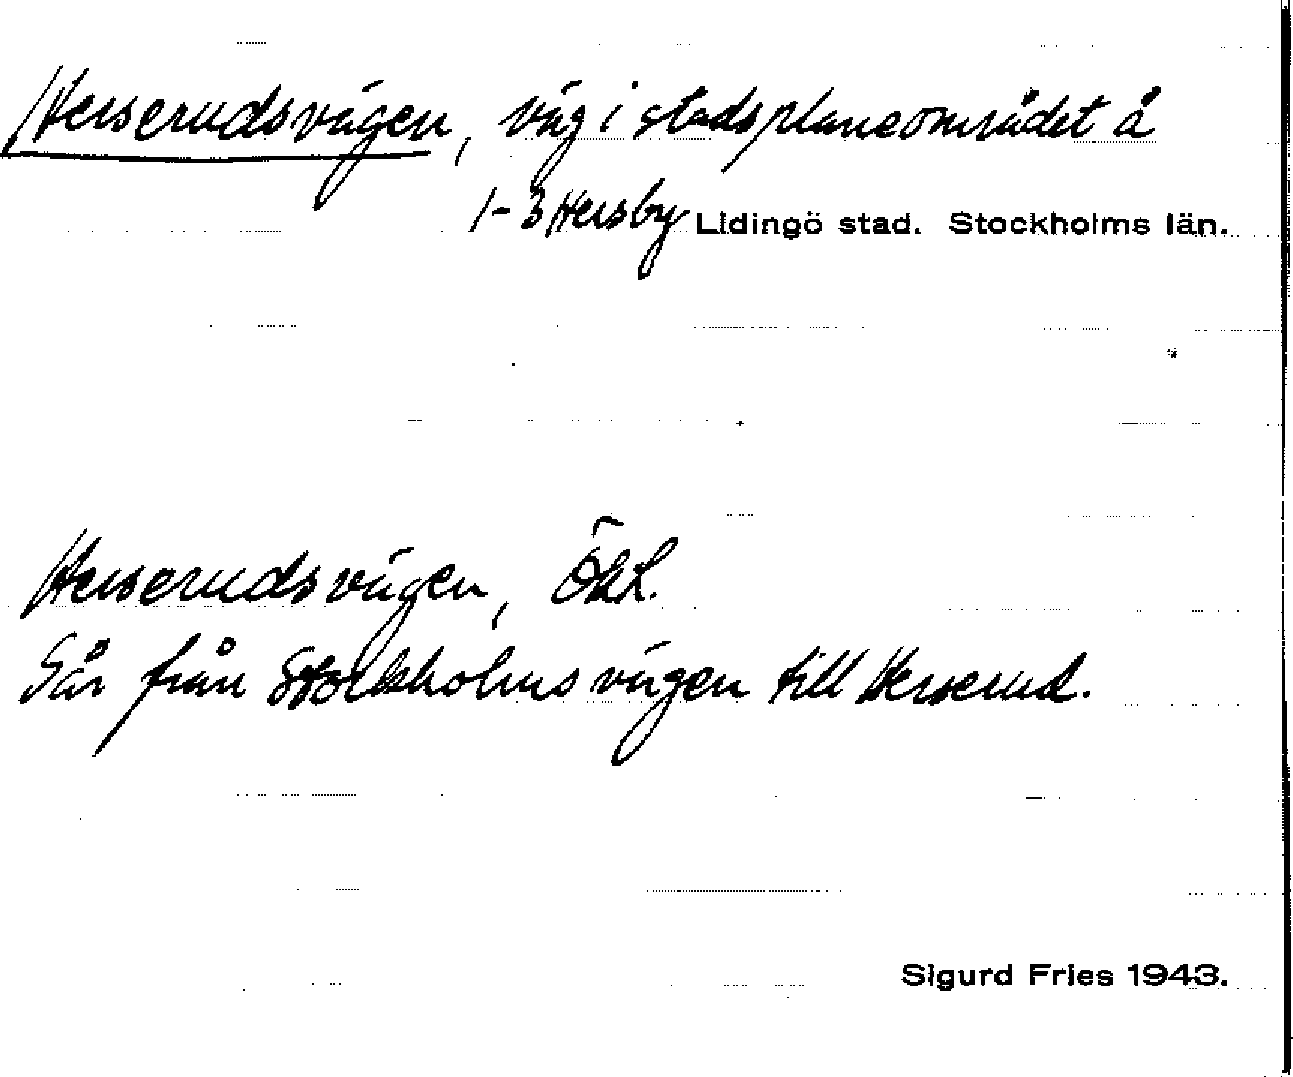 Herserudsvägen, väg i stadsplaneområdet å
1-3 Hersby Lidingö stad. Stockholms län.
Herserudsvägen, ÖkL.
Går från Stockholmsvägen till Herserud.
Sigurd Fries 1943.